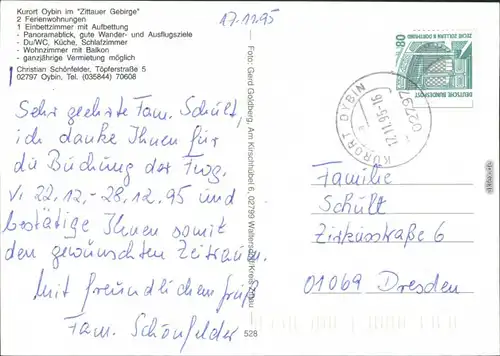 Kurort Oybin im "Zittauer Gebirge"
2 Ferienwohnungen
1 Einbettzimmer mit Aufbettung
- Panoramablick, gute Wander- und Ausflugsziele
- Du/WC, Küche, Schlafzimmer
- Wohnzimmer mit Balkon
- ganzjährige Vermietung möglich
Christian Schönfelder, Töpferstraße 5
02797 Oybin, Tel. (035844) 70608
17.11.95
Sehr geehrte Fam. Schult,
ich danke Ihnen für
die Buchung der Fwg.
v. 22.12.-28.12.95 und
bestätige Ihnen somit
den gewünschten Zeitraum.
Mit freundlichen Grüß
Fam. Schönfelder
Foto: Gerd Goldberg, Am Kirschhübel 6, 02799 Waltersdorf/Kreis Zittau
528
80
ZECHE ZOLLERN II DORTMUND
DEUTSCHE BUNDESPOST
02797
17.11.95-16
a
KURORT OYBIN
Familie
Schult
Zirkusstraße 6
01069 Dresden